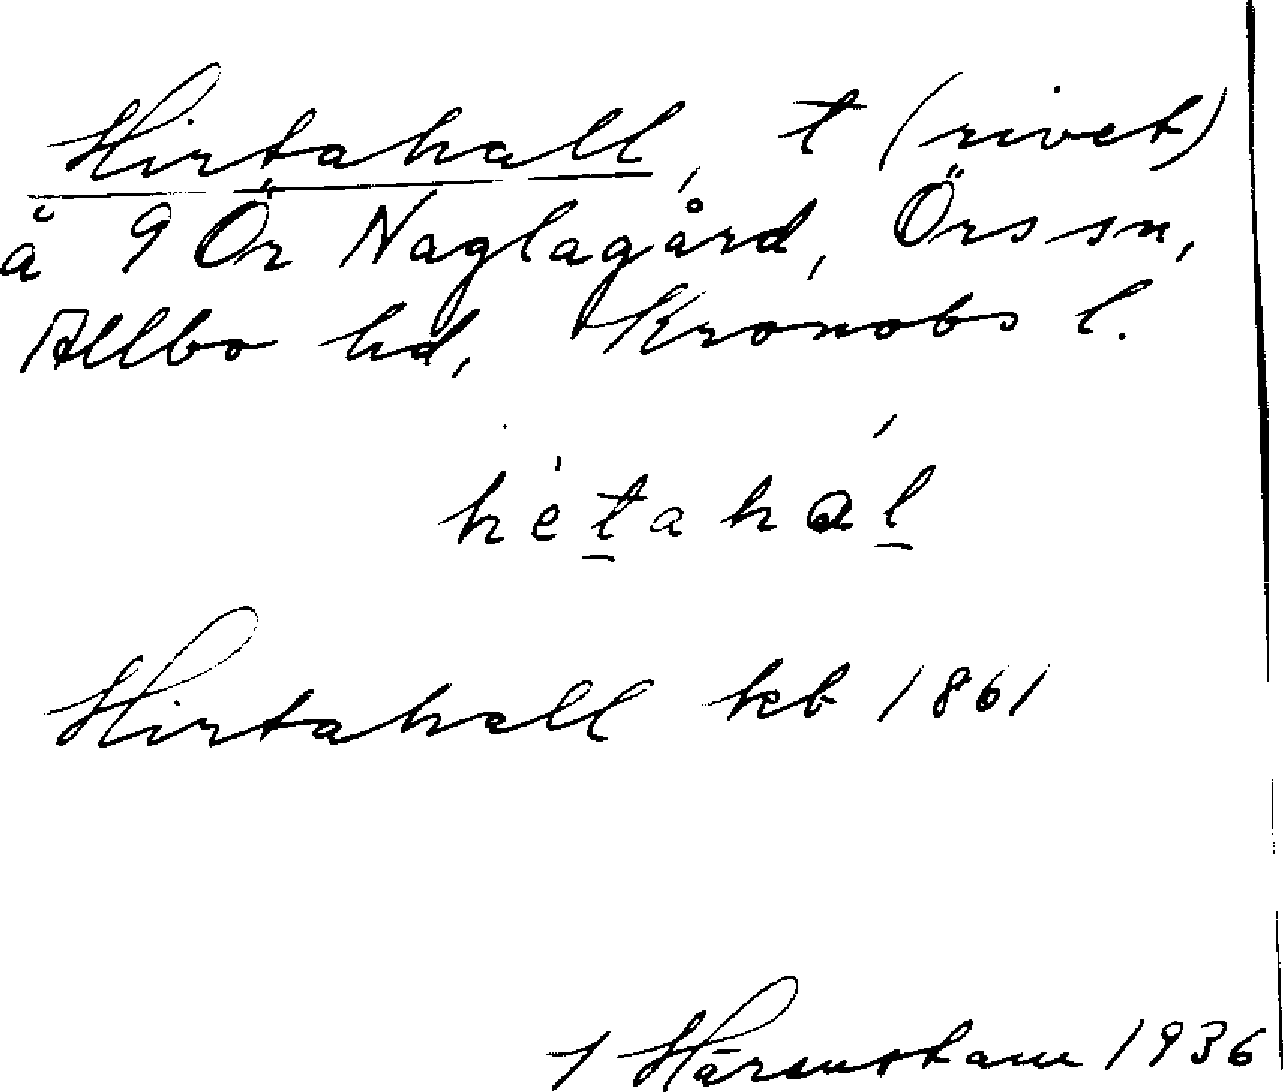 Hirtahall, t (rivet)
å 9 Ör Naglagård, Örs sn,
Allbo hd, Kronobs l.
hetahal
Hirtahall kb 1861
1936